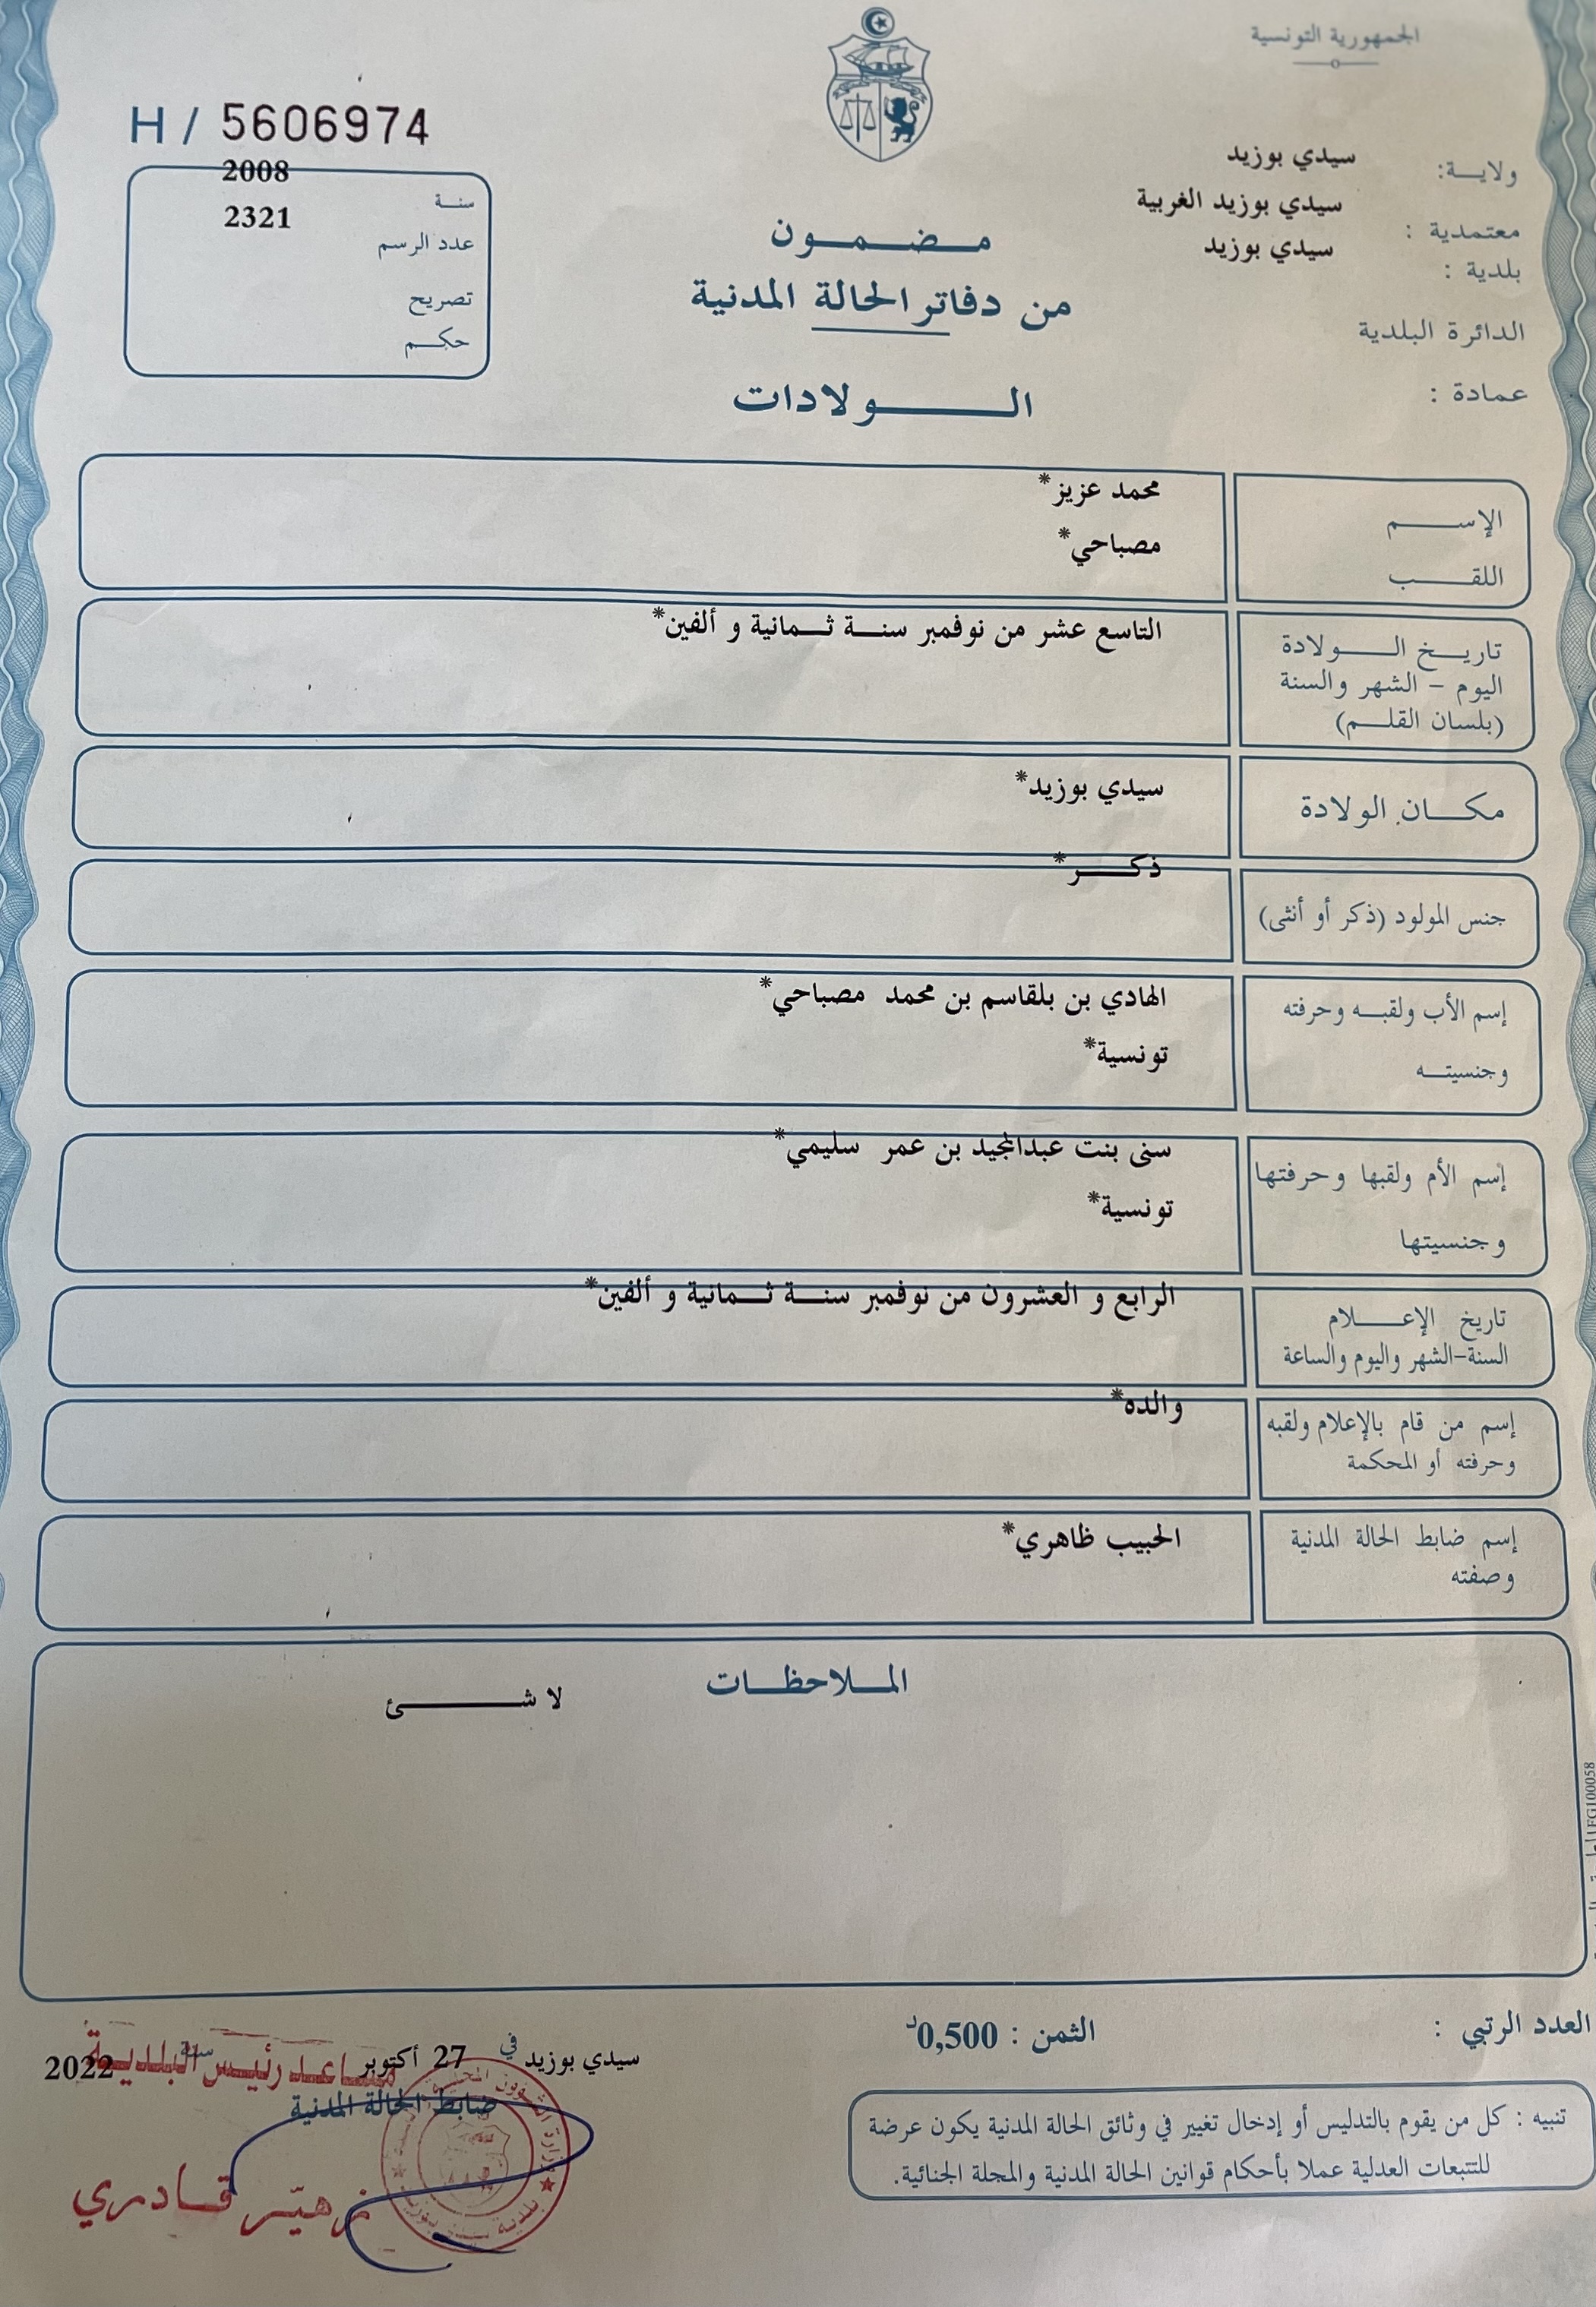 الجمهورية التونسية
H / 5606974
سنة 2008
عدد الرسم 2321
تصريح
حكم
ولاية: سيدي بوزيد
معتمدية : سيدي بوزيد الغربية
بلدية : سيدي بوزيد
الدائرة البلدية
عمادة :
مضمون
من دفاتر الحالة المدنية
الولادات
الإسم محمد عزيز*
اللقب مصباحي*
تاريخ الولادة التاسع عشر من نوفمبر سنة ثمانية و ألفين*
اليوم - الشهر والسنة
(بلسان القلم)
مكان الولادة سيدي بوزيد*
جنس المولود (ذكر أو أنثى) ذكر*
إسم الأب ولقبه وحرفته الهادي بن بلقاسم بن محمد مصباحي*
وجنسيته تونسية*
إسم الأم ولقبها وحرفتها سنى بنت عبدالمجيد بن عمر سليمي*
وجنسيتها تونسية*
تاريخ الإعلام الرابع و العشرون من نوفمبر سنة ثمانية و ألفين*
السنة-الشهر واليوم والساعة
إسم من قام بالإعلام ولقبه والده*
وحرفته أو المحكمة
إسم ضابط الحالة المدنية الحبيب ظاهري*
وصفته
الملاحظات
لا شئ
العدد الرتبي :
الثمن : 0,500د
سيدي بوزيد في 27 أكتوبر سنة 2022
مساعد رئيس البلدية
ضابط الحالة المدنية
زهيّر قادري
تنبيه : كل من يقوم بالتدليس أو إدخال تغيير في وثائق الحالة المدنية يكون عرضة
للتتبعات العدلية عملا بأحكام قوانين الحالة المدنية والمجلة الجنائية.